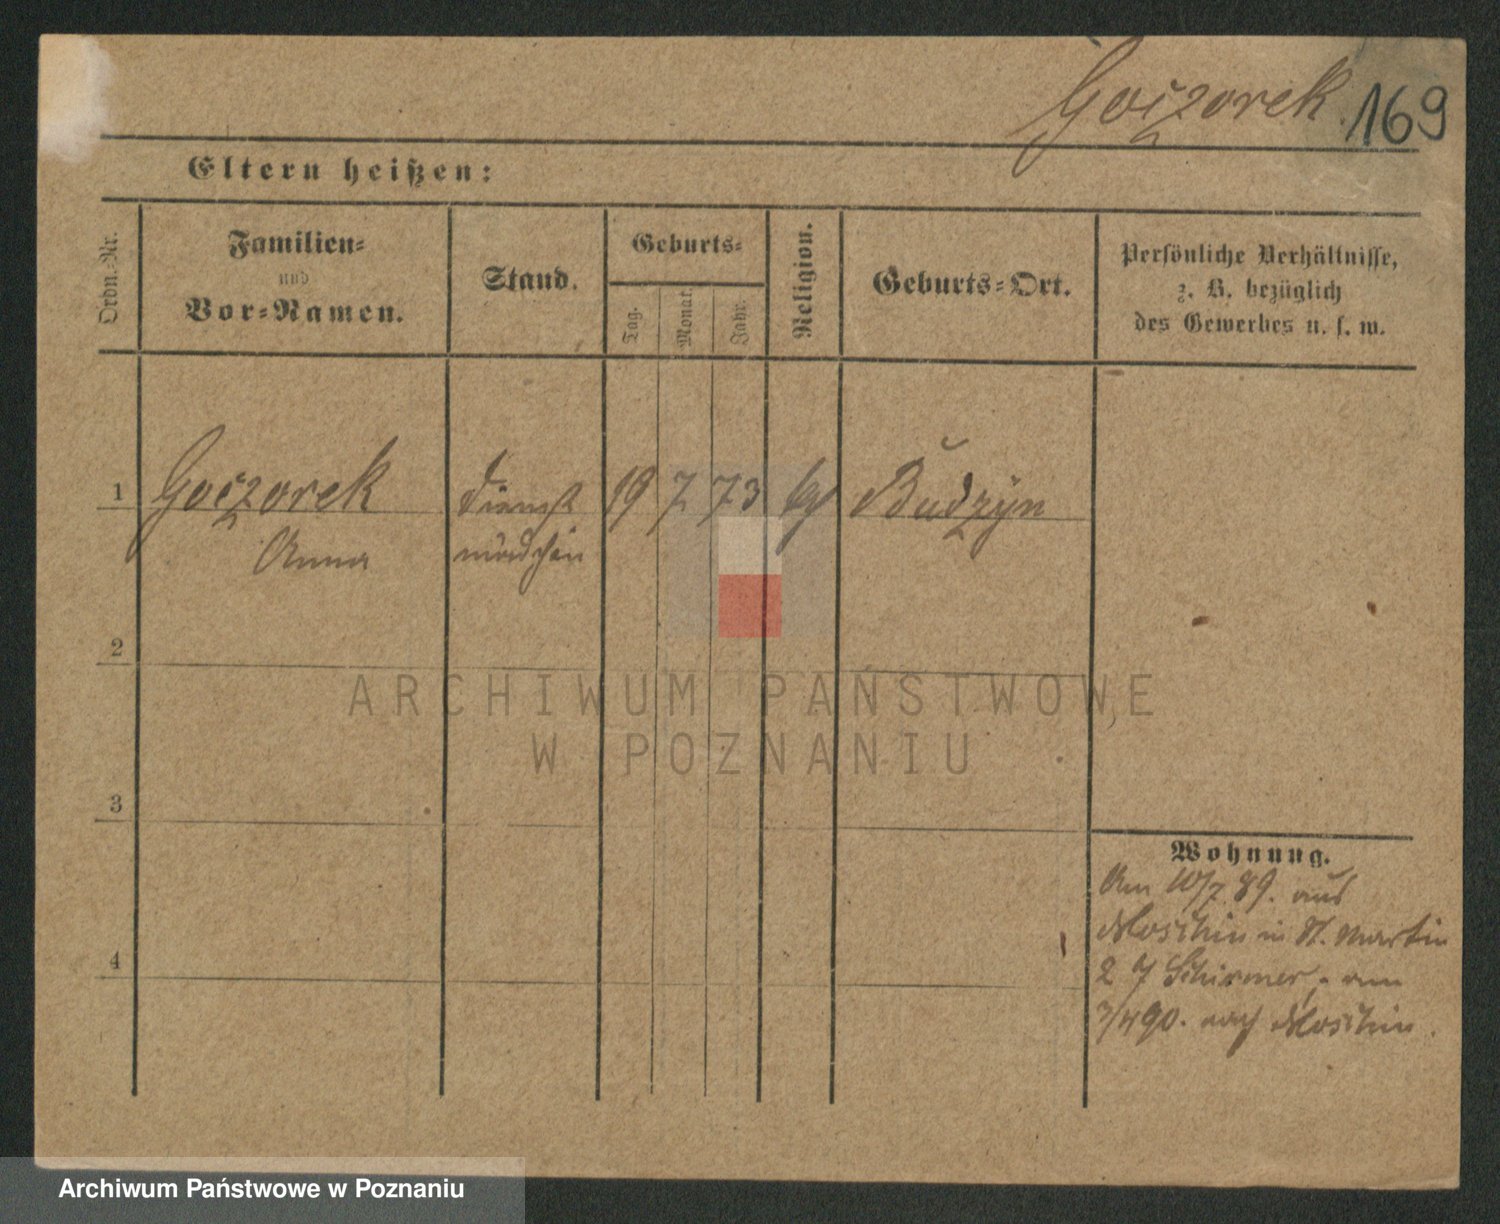 Goczorek. 169
Eltern heißen:
Ordn.-Nr.
Familien-
und
Vor-Namen.
Stand.
Geburts-
Tag.
Monat.
Jahr.
Religion.
Geburts-Ort.
Persönliche Verhältnisse,
z. B. bezüglich
des Gewerbes u. s. w.
1 Goczorek Dienst 19 7 73 Budzyn
Anna mädchen
2
3
4
Wohnung.
Am 10/7 89. aus
Moschin in St. Martin
2 Schirmer, am
3/4 90. nach Moschin.
ARCHIWUM PAŃSTWOWE
W POZNANIU
Archiwum Państwowe w Poznaniu